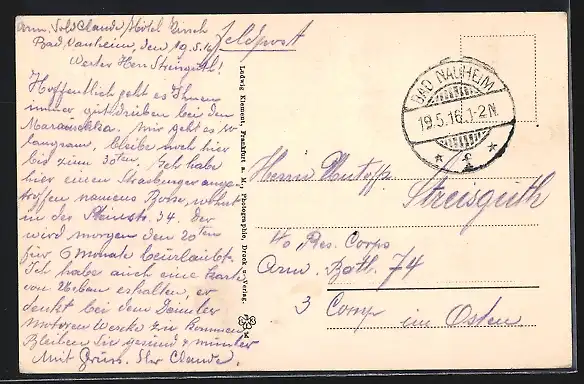 Arm. Sold. Claude / Hôtel Hirsch
Bad Nauheim, den 19.5.16
Feldpost
Werter Herr Streisguth!
Hoffentlich geht es Ihnen
immer gut drüben bei den
Mir geht es so
langsam, bleibe noch hier
bis zum 30ten. Ich habe
hier einen Strasburger ange-
troffen namens wohnt
in der 34. Der
wird morgen den 20ten
für 6 Monate beurlaubt.
Ich habe auch eine Karte
von Urban erhalten, er
denkt bei dem Daimler
Motoren Werke zu kommen
Bleiben Sie gesund & munter
Mit Gruss. Ihr Claude.
Ludwig Klement, Frankfurt a. M., Photographie, Druck u. Verlag.
BAD NAUHEIM
19.5.16.1-2N.
Herrn Untoff.
Streisguth
40 Res. Corps
Arm. Batl. 74
3 Comp
im Osten